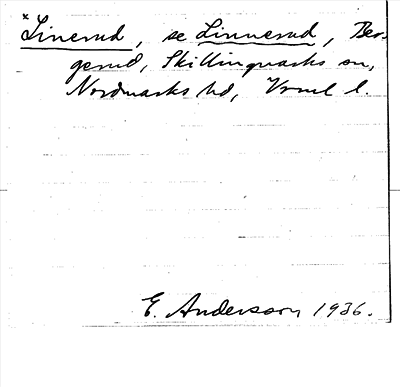 *Linerud, se Linnerud, Ber-
gerud, Skillingmarks sn,
Nordmarks hd, Vrml l.
E. Anderson 1936.